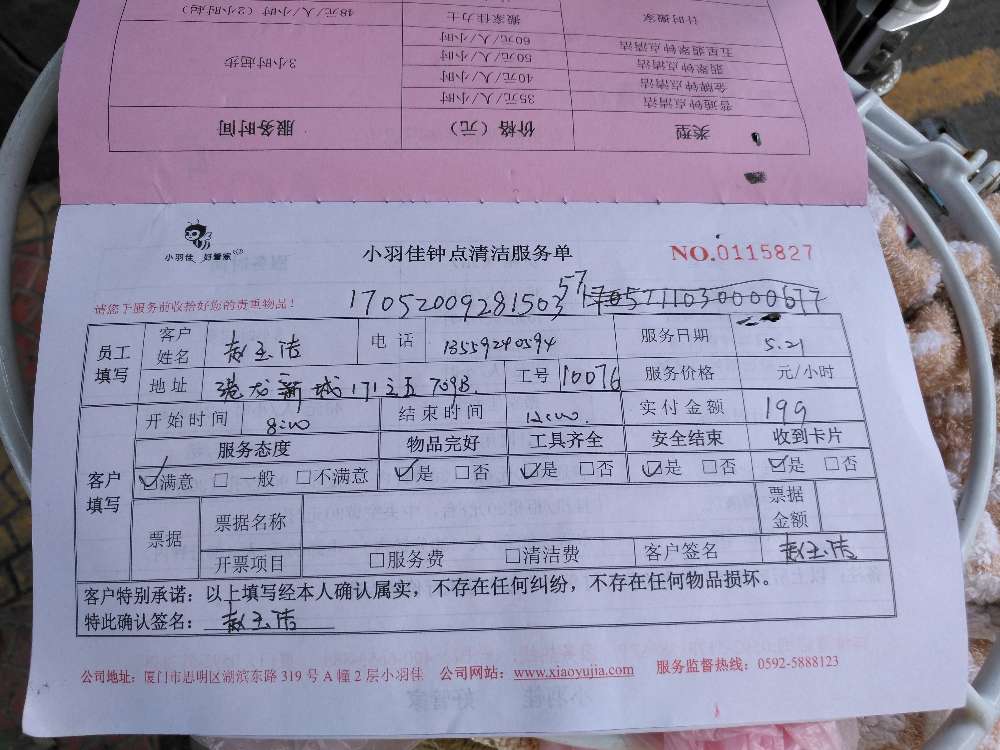 计时搬家 搬家佳力士 48元/人/小时（2小时起）
五星翡翠钟点清洁 60元/人/小时
翡翠钟点清洁 50元/人/小时
金牌钟点清洁 40元/人/小时
普通钟点清洁 35元/人/小时
3小时起步
类型 价格（元） 服务时间
小羽佳 好管家
小羽佳钟点清洁服务单 NO.0115827
请您于服务前收拾好您的贵重物品！
1705200928150357
员工填写 客户姓名 赵玉洁 电话 13559240594 服务日期 5.21
地址 港龙新城171之五709B 工号 10076 服务价格 元/小时
客户填写 开始时间 8:00 结束时间 12:00 实付金额 199
服务态度 物品完好 工具齐全 安全结束 收到卡片
☑满意 □一般 □不满意 ☑是 □否 ☑是 □否 ☑是 □否 ☑是 □否
票据 票据名称 票据金额
开票项目 □服务费 □清洁费 客户签名 赵玉洁
客户特别承诺：以上填写经本人确认属实，不存在任何纠纷，不存在任何物品损坏。
特此确认签名：赵玉洁
公司地址：厦门市思明区湖滨东路319号A幢2层小羽佳 公司网站：www.xiaoyujia.com 服务监督热线：0592-5888123